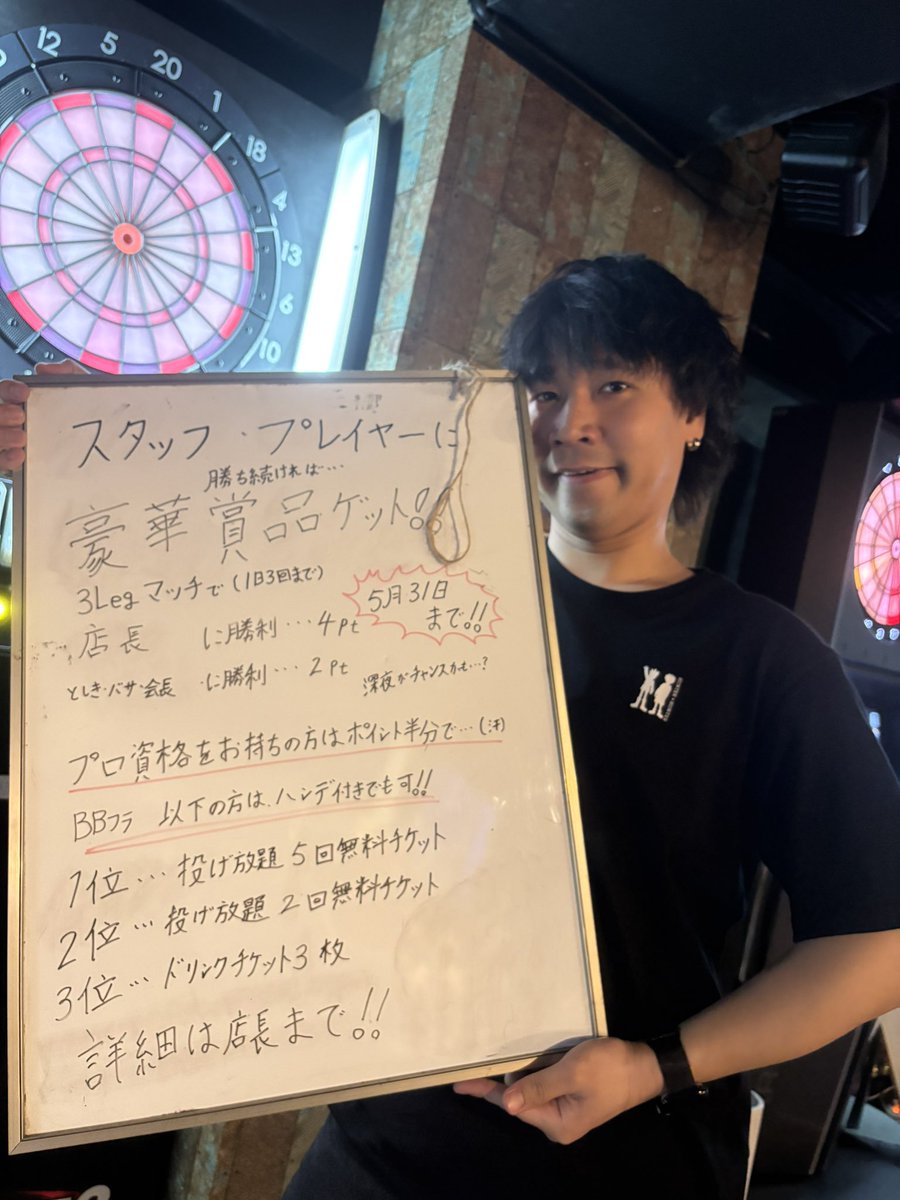 12 5 20 1 18 4 13 6 10
スタッフ・プレイヤーに
勝ち続ければ…
豪華賞品ゲット!!
3Leg マッチで(1日3回まで)
5月31日
まで!!
店長 に勝利…4pt
としき・バサ・会長 に勝利…2pt
深夜がチャンスかも…?
プロ資格をお持ちの方はポイント半分で…(汗)
BBフラ 以下の方は、ハンデ付きでも可!!
1位…投げ放題5回無料チケット
2位…投げ放題2回無料チケット
3位…ドリンクチケット3枚
詳細は店長まで!!